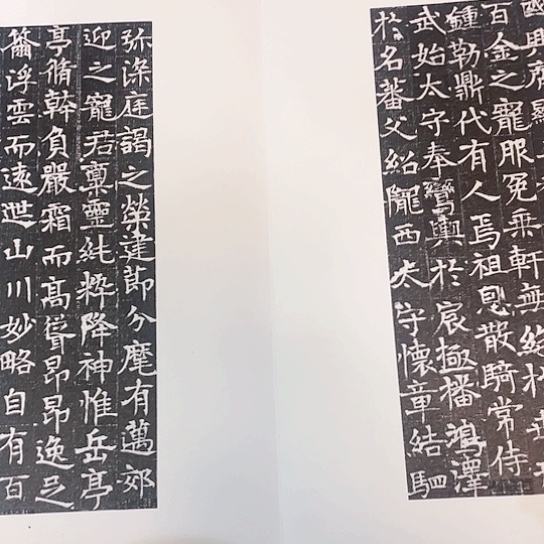 百金之寵服冕乘軒無絕
鍾勒鼎代有人焉祖恩散騎常侍
武始太守奉鸞輿於宸極播鴻澤
於名蕃父紹隴西太守懷章結駟
弥深庭謁之榮建節分麾有萬郊
迎之寵君稟靈純粹降神惟岳亭
亭脩幹負嚴霜而高聳昂昂逸足
籋浮雲而遠迣山川妙略自有百